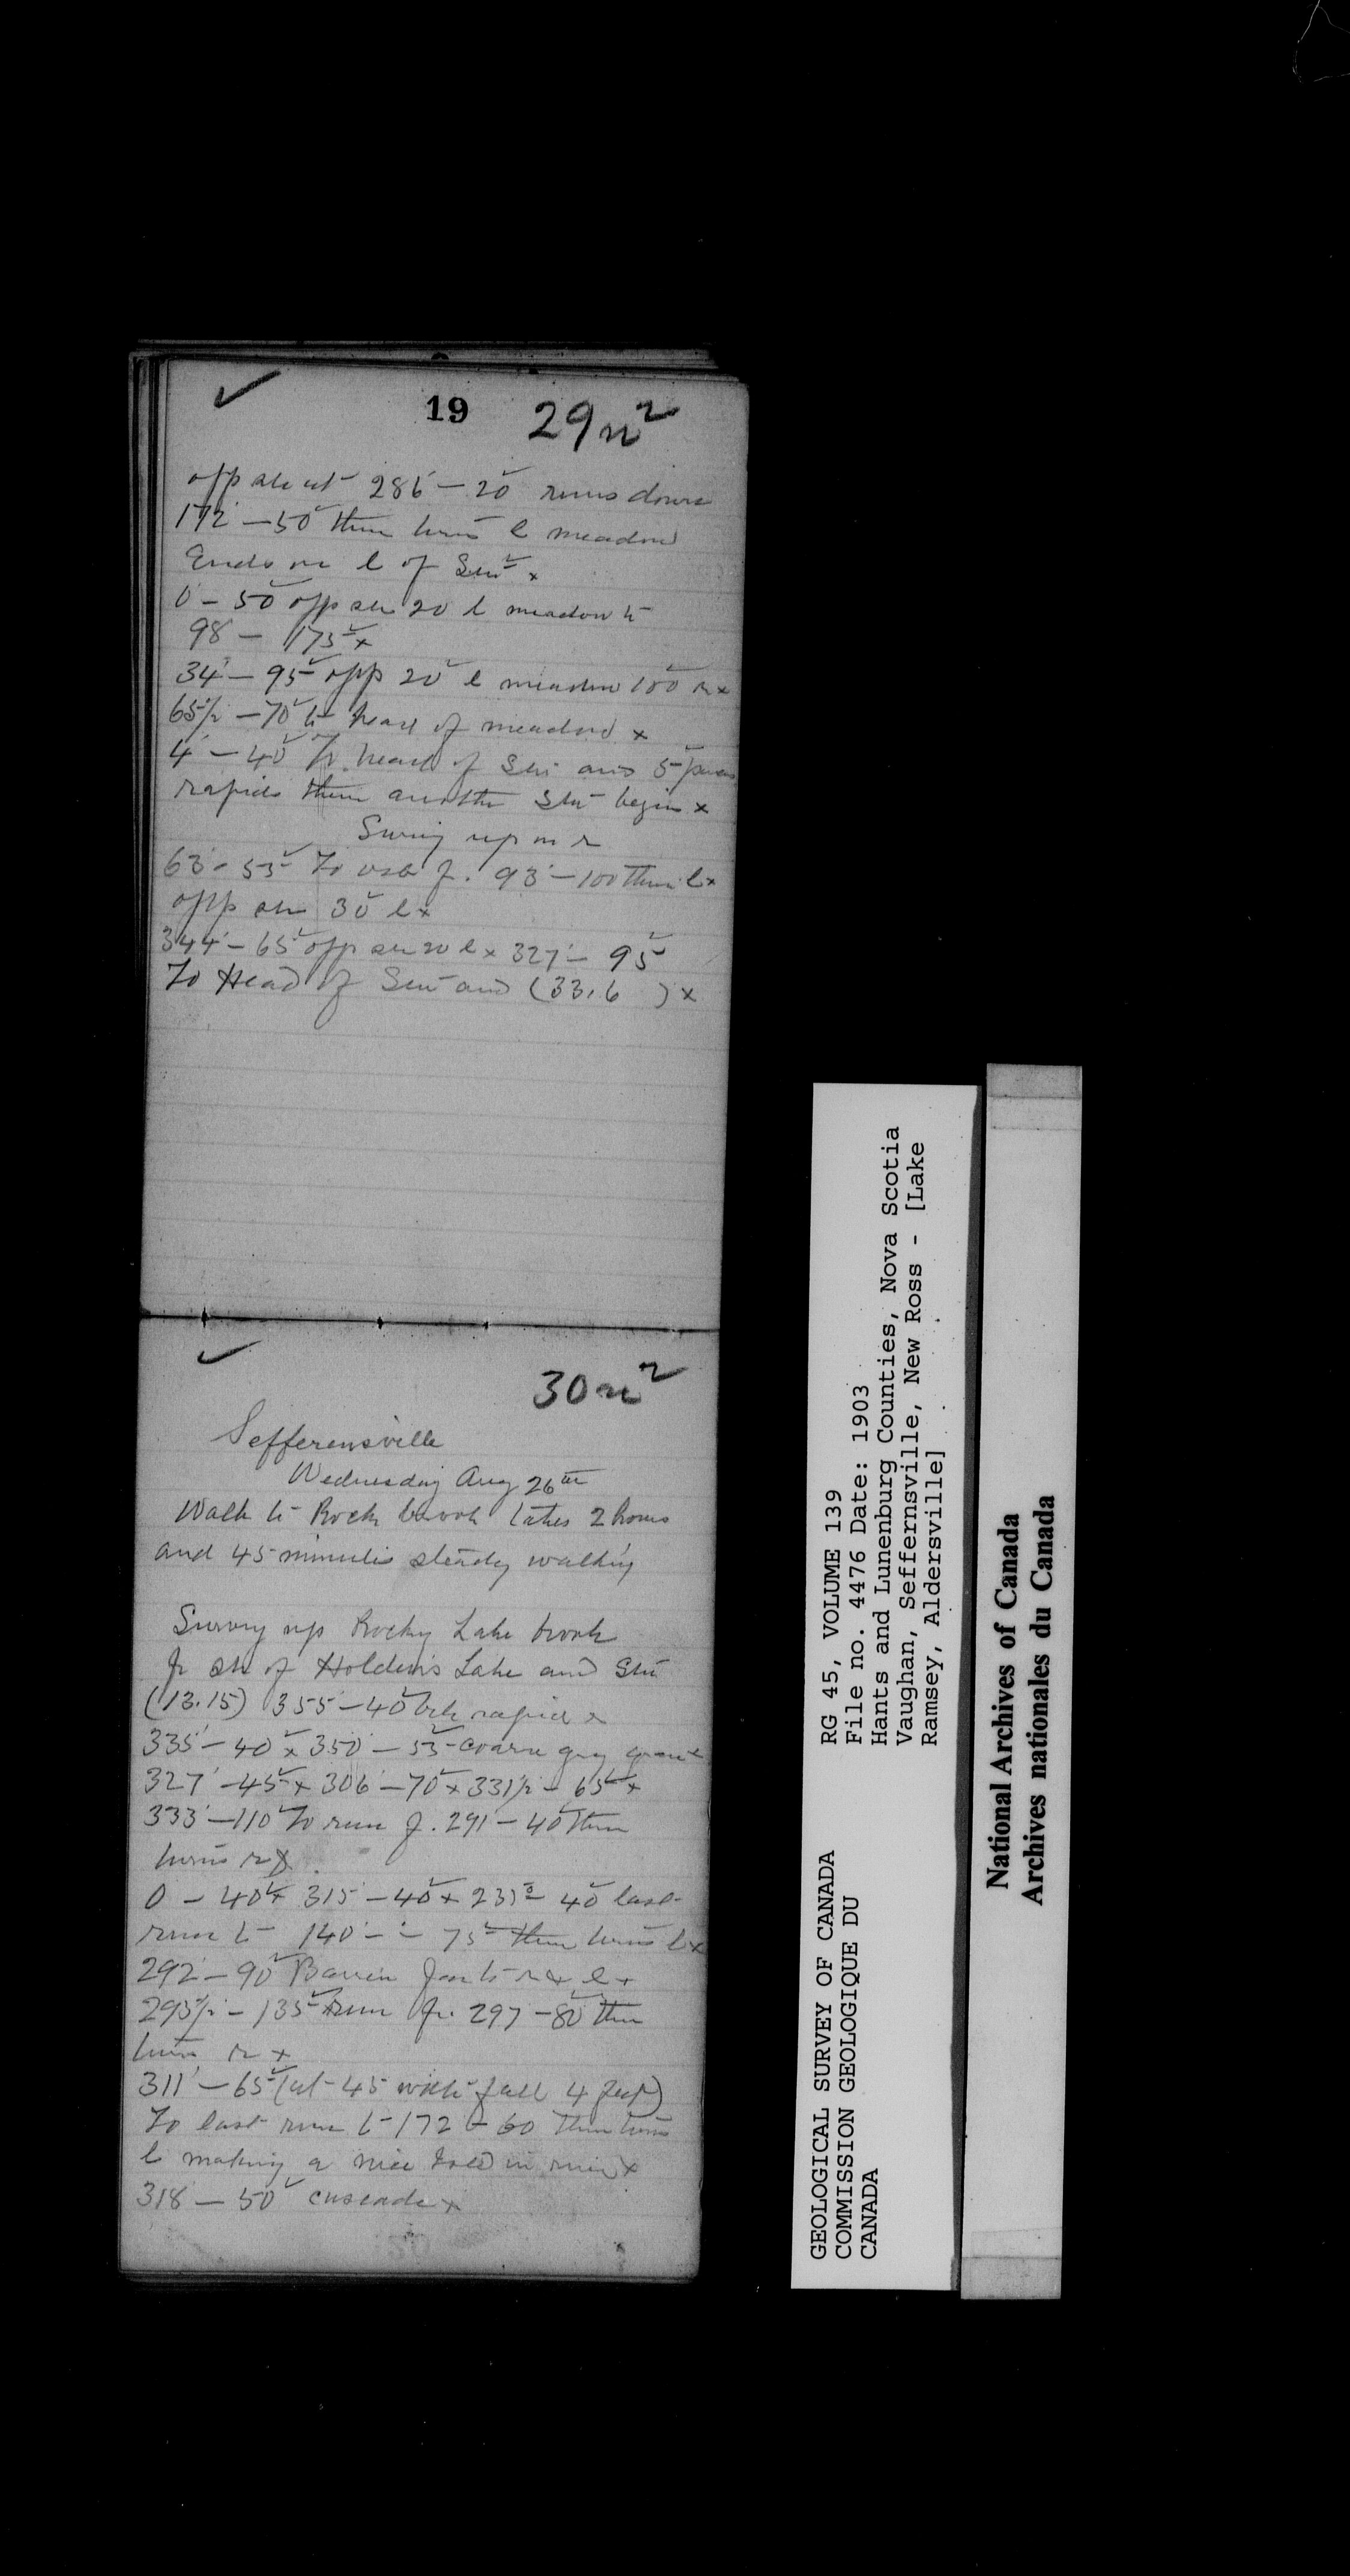 19 29n²
opp at 286 - 20 runs down
172 - 50 then turns l meadow
Ends on l of
0 - 50 opp 20 l meadow to
98 - 175 x
34 - 95 opp 20 l meadow 100 r x
65½ - 70 to head of meadow x
4 - 40 To head of and 5 paces
rapids then another begins x
Survey up on r
63 - 55 To f. 93 - 100 then l x
opp 30 l x
344 - 65 opp 20 l x 327 - 95
To Head of and (33.6 ) x
30n²
Seffernsville
Wednesday Aug 26th
Walk to Rock brook takes 2 hours
and 45 minutes steady walking
Survey up Rocky Lake brook
fr of Holden's Lake and
(13.15) 355 - 40 rapid x
335 - 40 x 350 - 55 coarse grey granite
327 - 45 x 306 - 70 x 331½ - 65 x
333 - 110 To run f. 291 - 40 then
turns r x
0 - 40 x 315 - 40 x 231 - 40 last
run to 140 - 75 then turns l x
292 - 90 Barren r & l x
295½ - 135 run fr. 297 - 80 then
turns r x
311 - 65 (at 45 with fall 4 feet)
To last run to 172 - 60 then turns
l making a nice in x
318 - 50 cascade x
GEOLOGICAL SURVEY OF CANADA
COMMISSION GEOLOGIQUE DU
CANADA
RG 45, VOLUME 139
File no. 4476 Date: 1903
Hants and Lunenburg Counties, Nova Scotia
Vaughan, Seffernsville, New Ross - [Lake
Ramsey, Aldersville]
National Archives of Canada
Archives nationales du Canada